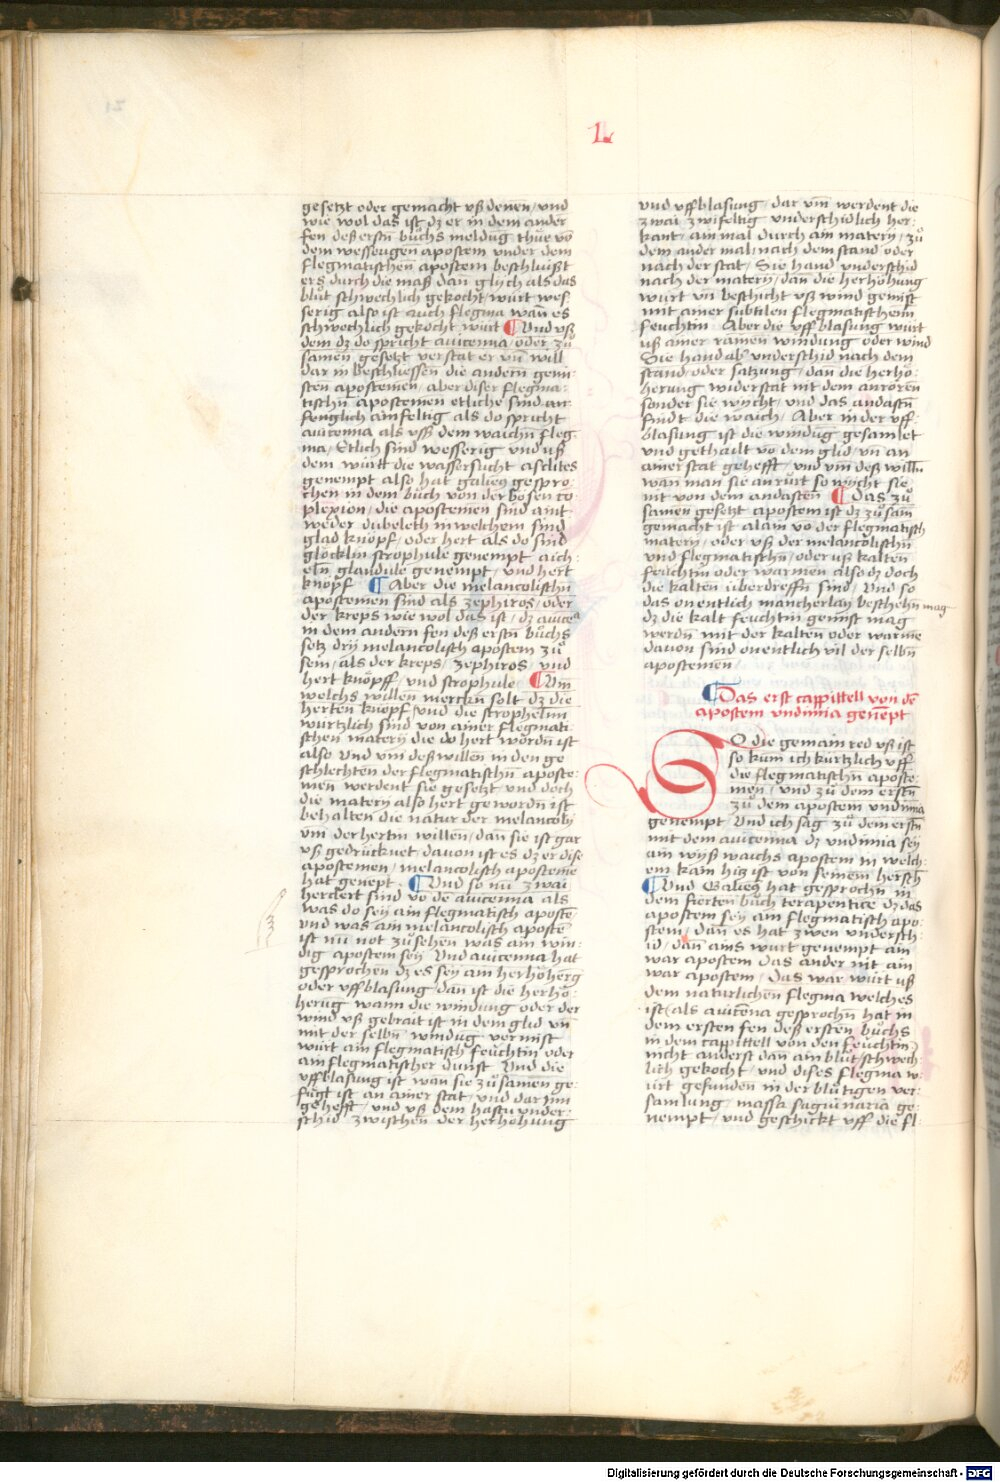 L
gesetzt oder gemacht uß denen / und
wie wol das ist dz er in dem ander
fen deß erstn bůchs meldūg thůe vō
dem wesserigen apostem under dem
flegmatischen apostem beschlüißt
ers durch die maß dan glych als das
blůt schwechlich gekocht / würt wes
serig also ist auch flegma wan es
schwechlich gekocht würt ¶ Und uß
dem dz do spricht auicenna / oder zů
samen gesetzt verstat er vn̄ will
dar in beschliessen die andern gemi-
sten apostemen / aber diser flegma-
tischn̄ apostemen etliche sind an-
fenglich ainfeltig als do spricht
auicenna als uß dem waichn̄ fleg-
ma / Etlich sind wesserig und uß
dem würt die wassersucht asclites
genempt also hat galien̄ gespro-
chen in dem bůch von der bösen co
plexion / die apostemen sind aint-
weder dubeleth in welchem sind
glad knöpf / oder hert als do sind
glöcklin strophule genempt / aich-
eln̄ glandule genempt / und hert
knöpf ¶ Aber die melancolischn̄
apostemen sind als zephiros / oder
der kreps wie wol das ist / dz auicēa
in dem andern fen deß erstn̄ bůchs
setz dry melancolisch apostem zů
sein / als der kreps / zephiros / und
hert knöpff / und strophule ¶ Um̄
welchs willen mercku solt dz die
herten knöpf / und die strophelnn
würtzlich sind von ainer flegmati-
schen matery die do hert wordn̄ ist
also Und um̄ deß willen in den ge
schlechten der flegmatischn̄ aposte-
men werdent sie gesetzt und doch
die matery also hert gewordn̄ ist
behalten die natur der melancoly
um̄ der hertin willen / dan̄ sie ist gar
uß gedrücknet / davon ist es dz er dise
apostemen / melancolisch aposteme
hat genēpt . ¶ Und so nū zwai
herclert sind vō de auicenna als
was do sey ain flegmatisch apostē
und was ain melancolisch apostē
ist nū not zůsehen was ain win-
dig apostem sey Und auicenna hat
gesprochen dz es sey ain herhöherg
oder uffblasung dan̄ ist die herhö-
herūg wann die windung oder der
wind uß gebrait ist in dem glid vn̄
mit der selbn̄ windūg vermist
würt ain flegmatisch feüchtin oder
ain flegmatischer dunst Und die
uffblasung ist wan̄ sie zůsamen ge-
fügt ist an ainer stat / und dar um̄
gehefft / und uß dem hastu under-
schid zwischen der herhöhung
und uffblasung / dar um̄ werdent die
zwai zwifeltig underschidlich her-
kant / ain mal durch ain matery / zů
dem ander mal / nach dem stand oder
nach der stat / Sie hand underschid
nach der matery / dan̄ die herhöhung
würt vn̄ beschicht uß wind gemist
mit ainer subtilen flegmatischem
feuchtin / Aber die uffblasung würt
uß ainer rainen windung oder wind
Sie hand ab' underschid nach dem
stand / oder satzung / dan̄ die herhö-
herung widerstat nit dem anrören
sonder sie wycht / und das andastn̄
findt die waich / Aber in der uff-
blasung ist die windūg gesamlet
und gethailt vō dem glid / vn̄ an
ainer stat gehefft / und um̄ deß willn̄
wan man sie anrürt so wycht sie
nit von dem andastēn ¶ Das zů
samen gesetzt apostem ist dz zůsam̄
gemacht ist alain vō der flegmatisch
matery / oder uß der melancolischn̄
und flegmatischn̄ / oder uß kalten
feüchtin oder warmen also dz doch
die kalten überdreffn̄ sind / Und so
das onentlich mancherlay beschehn mag
dz die kalt feuchtin gemist mag
werdn̄ mit der kalten oder warme
davon sind onentlich vil der selbn̄
apostemen
¶ Das erst cappittell von dē
apostem undimia genēpt
SO die gemain red uß ist
so kum̄ ich kürtzlich uff
die flegmatischn̄ aposte-
men / und zů dem erstn̄
zů dem apostem undimia
genempt / Und ich sag zů dem erstn̄
mit dem auicenna dz undimia sey
ain wyß waichs apostem in welch-
em kain hiz ist von seinem hersch
¶ Und Galien̄ hat gesprochn̄ in
dem fierten bůch terapentice dz das
apostem sey ain flegmatisch apo-
stem / dan̄ es hat zwen undersch-
id / dan̄ ains würt genempt ain
war apostem das ander nit ain
war apostem / Das war würt uß
dem naturlichen flegma welches
ist / als auicēna gesprochn̄ hat in
dem ersten fen deß ersten bůchs
in dem cappittell von den feuchtin
nicht anderst dan̄ ain blůt / schwech-
lich gekocht / und dises flegma w-
ürt gefunden in der blůtigen ver-
samlung / massa saguinaria ge-
nempt / und geschickt uff die fl-
Digitalisierung gefördert durch die Deutsche Forschungsgemeinschaft - DFG